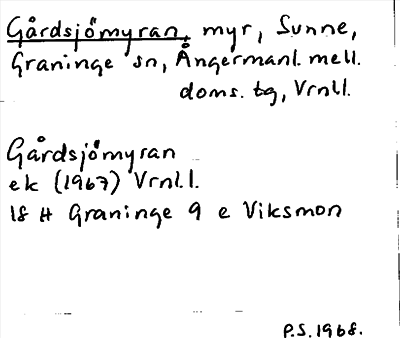 Gårdsjömyran, myr, Sunne,
Graninge sn, Ångermanl. mell.
doms. tg, Vrnll.
Gårdsjömyran
ek (1967) Vrnl.l.
18 H Graninge 9 e Viksmon
P.S. 1968.